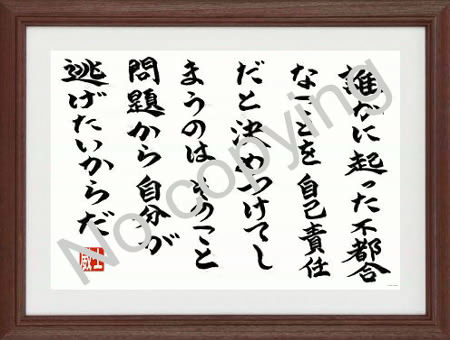 誰かに起った不都合
なことを自己責任
だと決めつけてし
まうのはそのこと
問題から自分が
逃げたいからだ
No copying